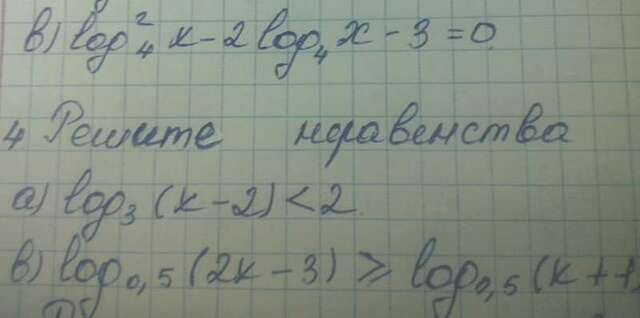 в) log₄² x - 2 log₄ x - 3 = 0
4 Решите неравенства
а) log₃ (x - 2) < 2
в) log₀,₅ (2x - 3) ≥ log₀,₅ (x +